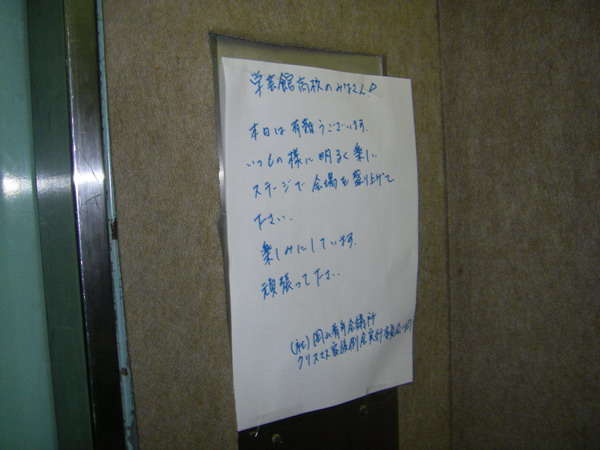 学芸館高校のみなさんへ
本日は有難うございます.
いつもの様に明るく楽しい
ステージで会場を盛り上げて
下さい.
楽しみにしています.
頑張って下さい.
(社)岡山青年会議所
クリスマス家族例会実行委員会一同